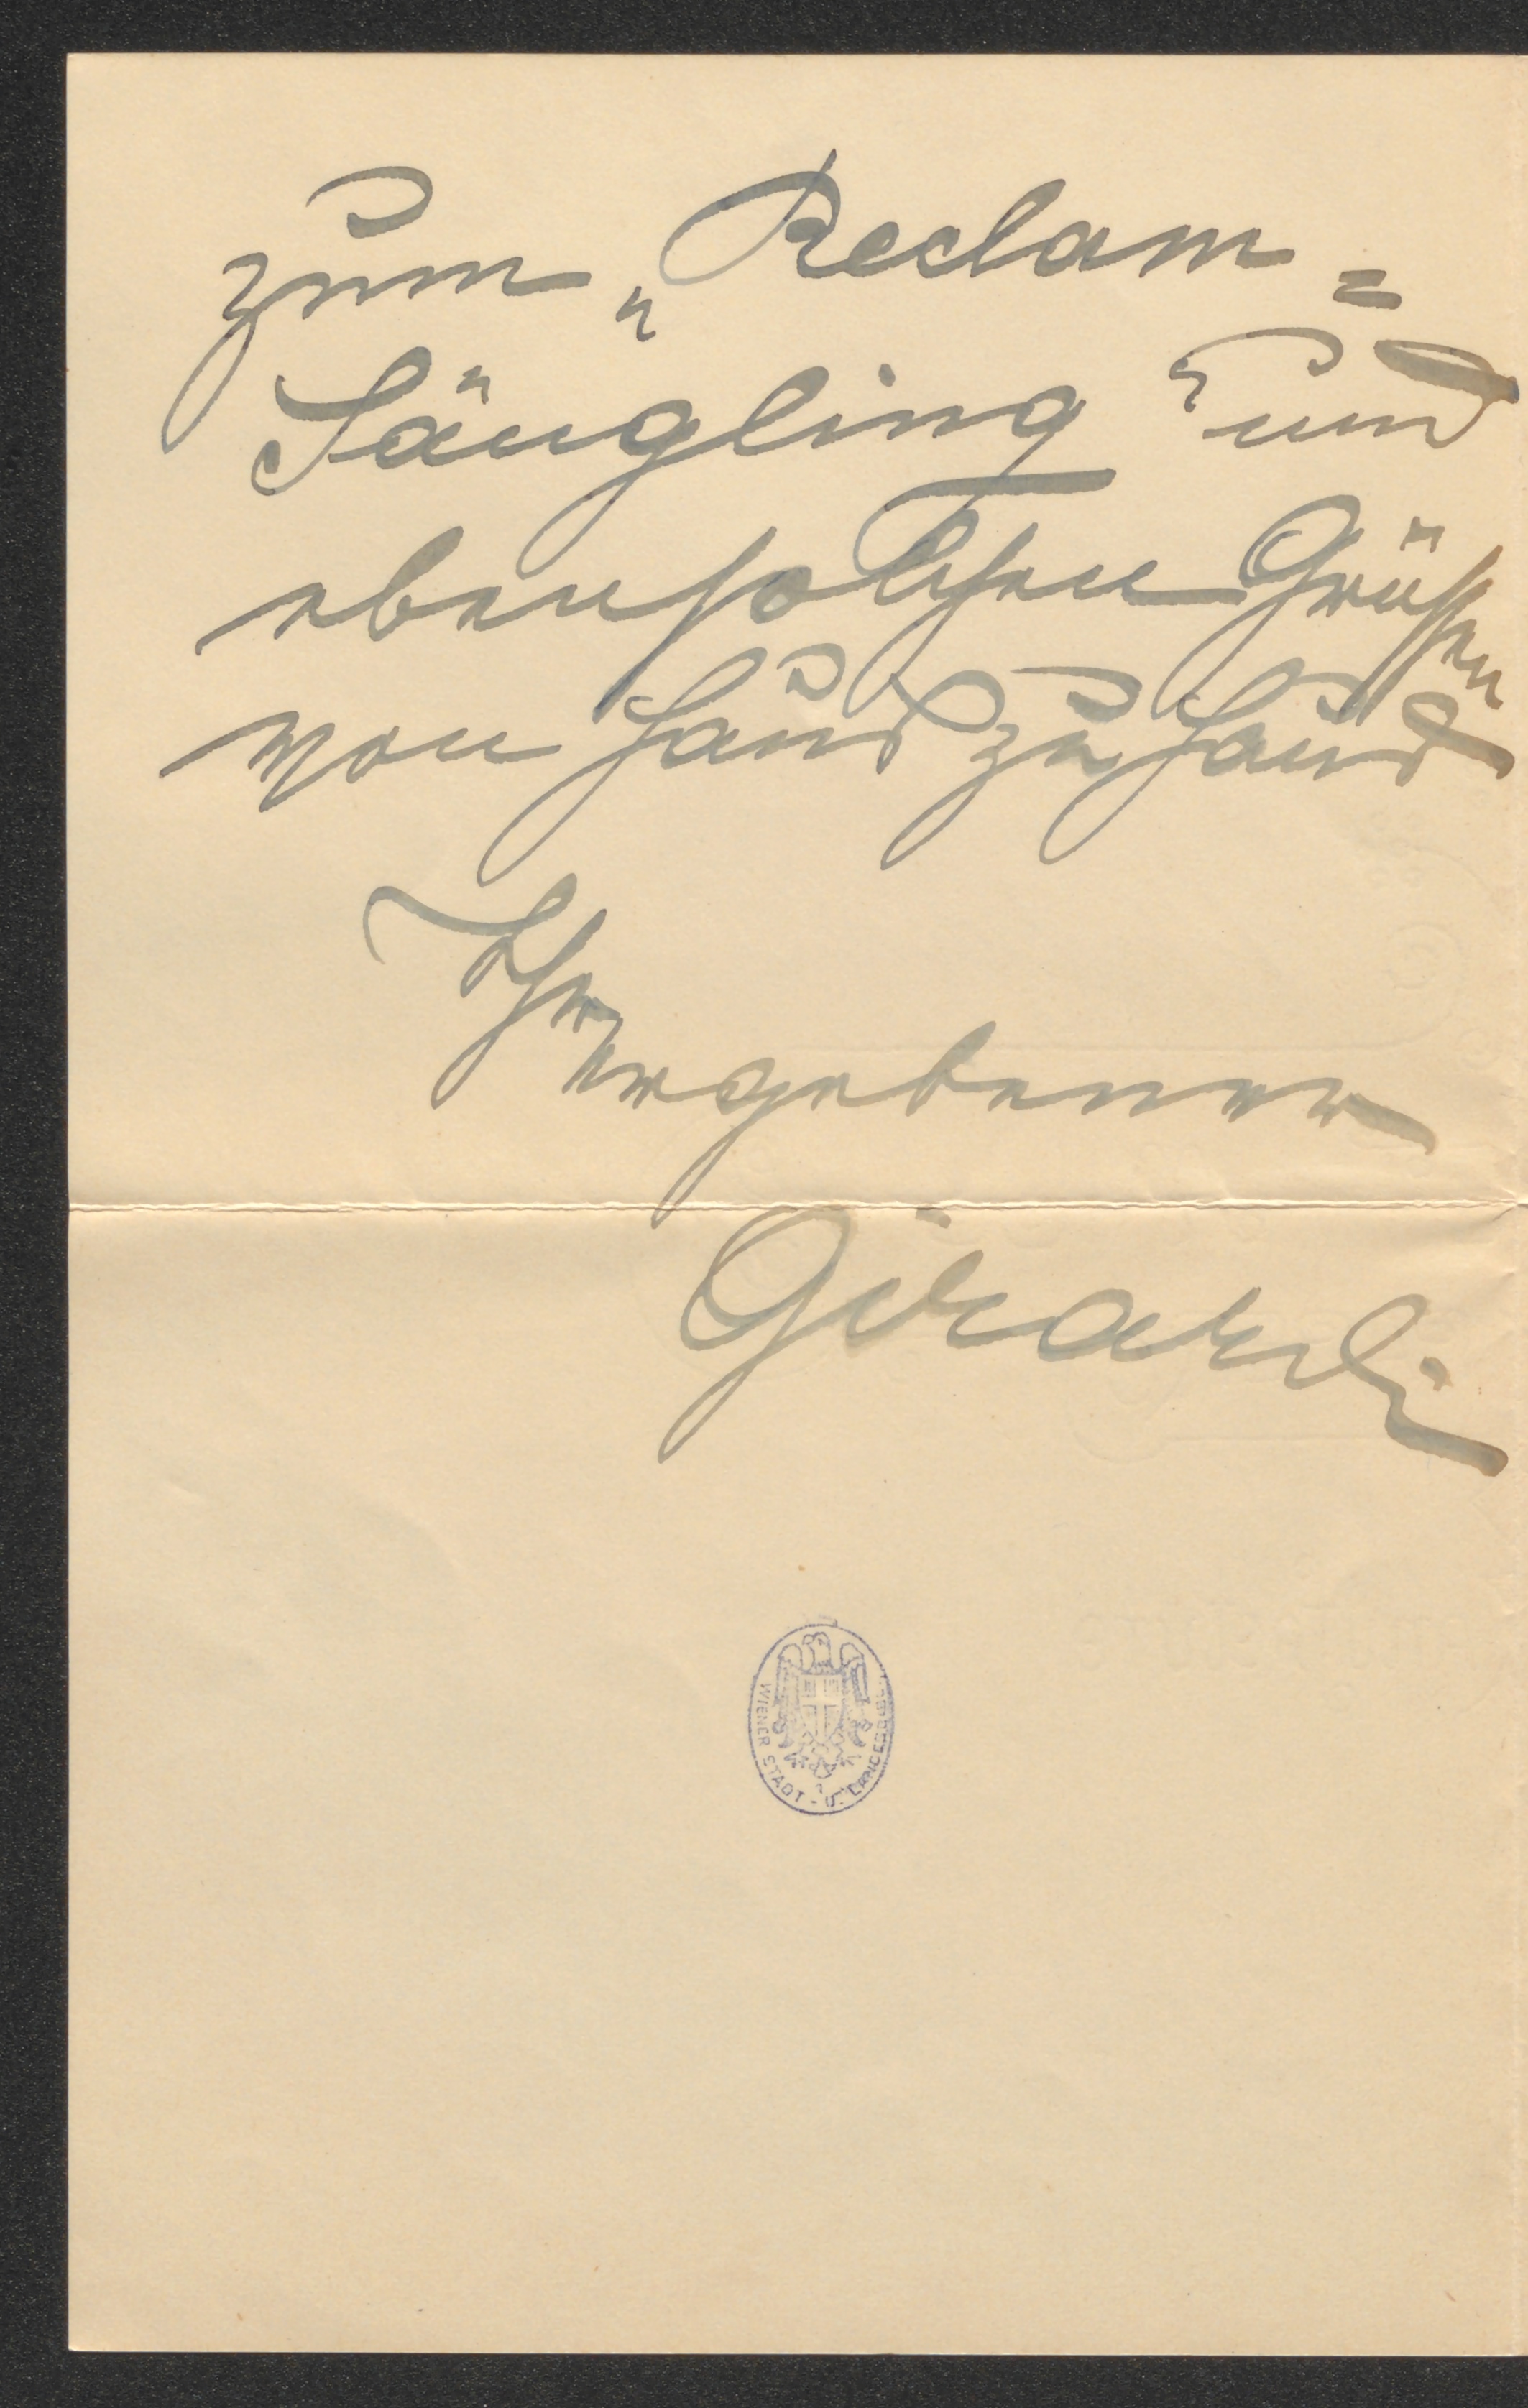 zum „Reclam=
Säugling“ und
ebensolchen Grüßen
von Haus zu Haus
Ihr
ergebener
Girardi
WIENER STADT - U. LANDESBIBL.